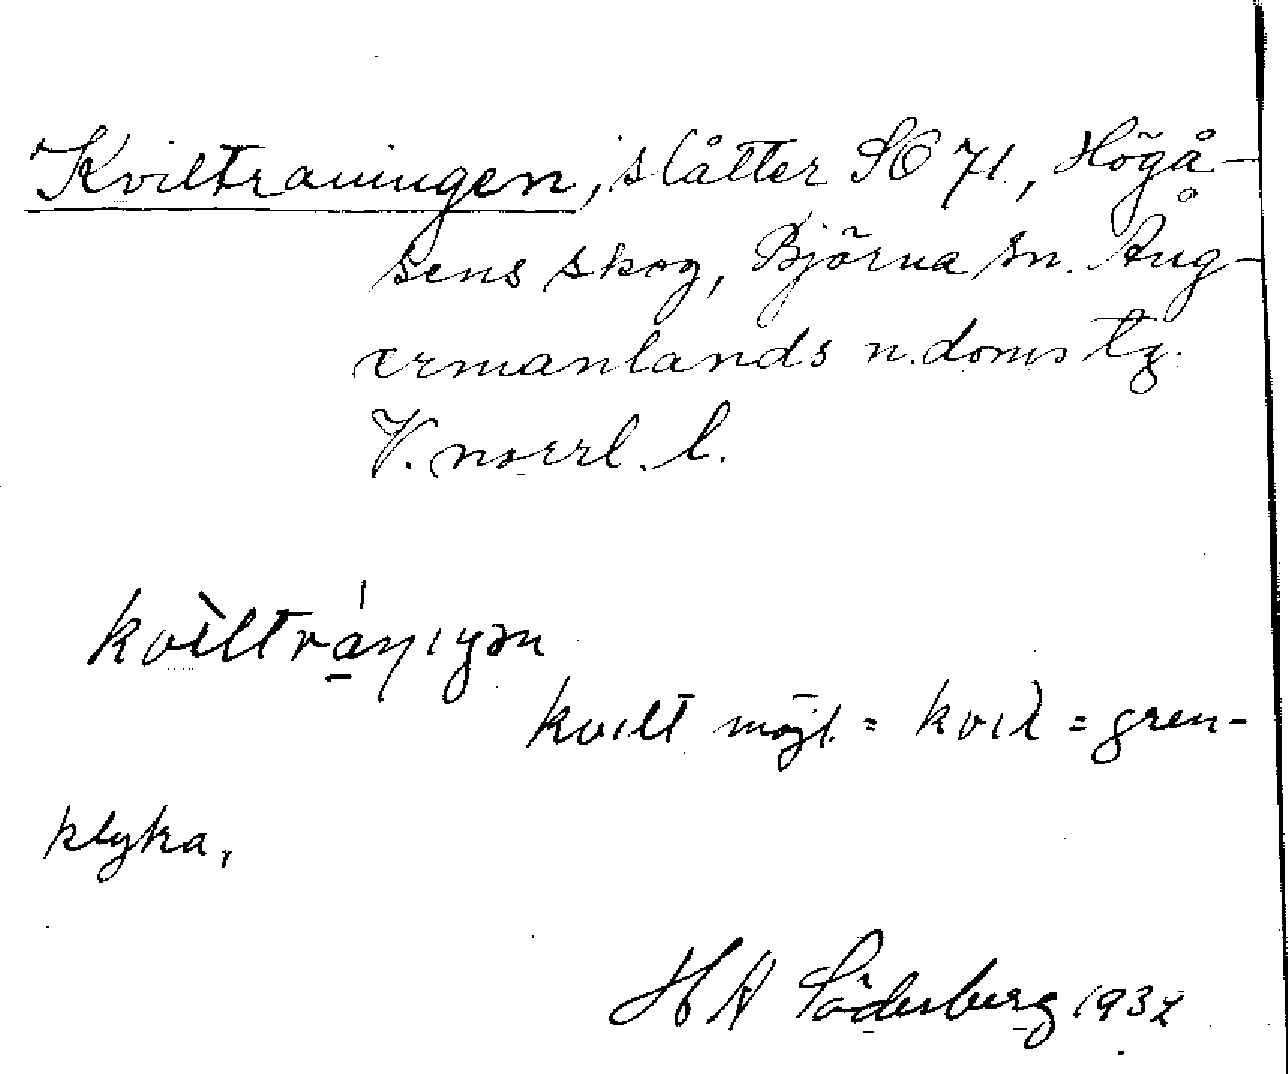 Kviltraningen, slåtter SO 71, Högå-
sens skog, Björna sn. Ång-
ermanlands n. doms tg.
V. norrl. l.
kvilt möjl. = kvil = gren-
klyka,
H A Söderberg 1932